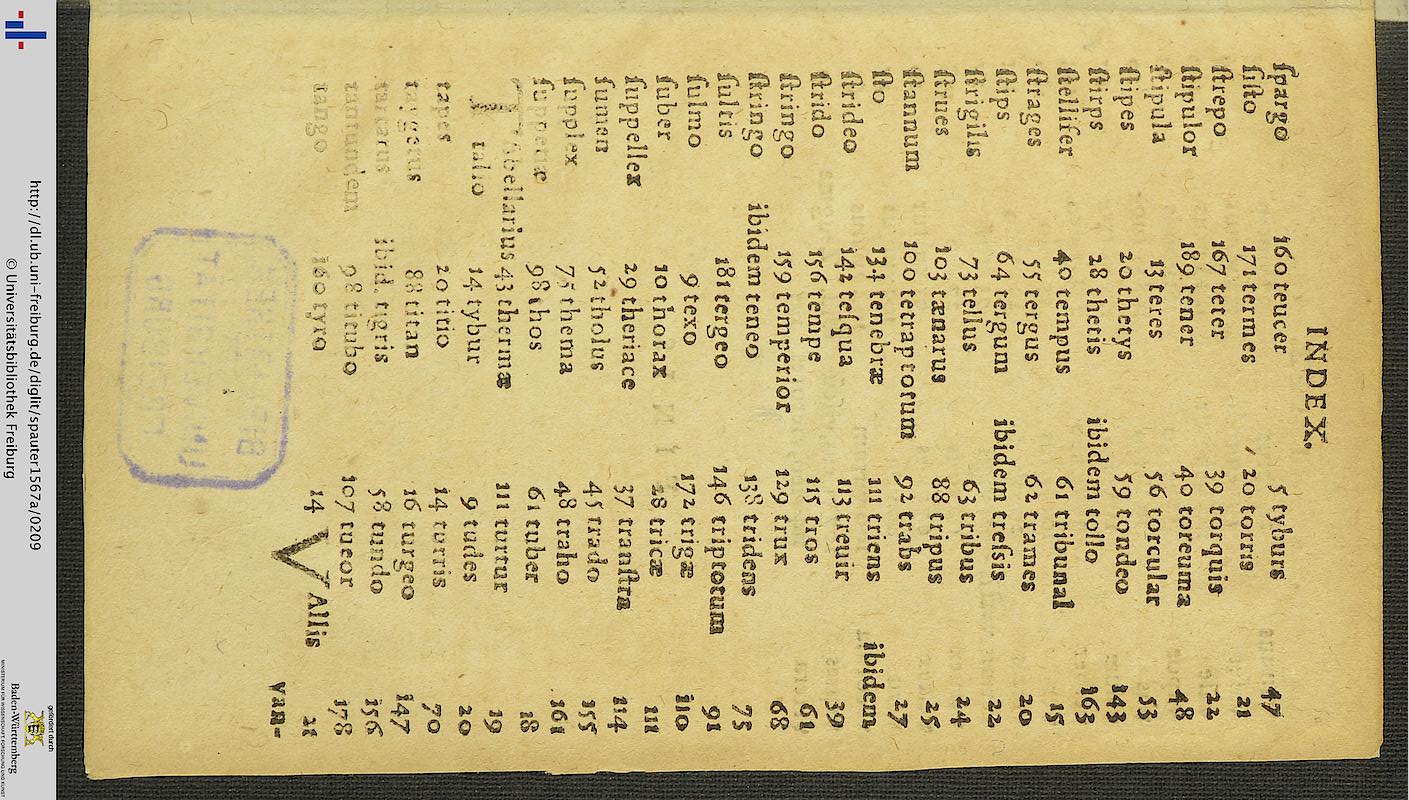 INDEX.
ſpargo 160 teucer 5 tyburs 47
ſiſto 171 termes 20 torris 21
ſtrepo 167 teter 39 torquis 22
ſtipulor 189 tener 40 toreuma 48
ſtipula 13 teres 56 torcular 53
ſtipes 20 thetys 59 tondeo 143
ſtirps 28 thetis ibidem tollo 163
ſtellifer 40 tempus 61 tribunal 15
ſtrages 55 tergus 62 trames 20
ſtips 64 tergum ibidem treſsis 22
ſtrigilis 73 tellus 63 tribus 24
ſtrues 103 tænarus 88 tripus 25
ſtannum 100 tetraptotum 92 trabs 27
ſto 134 tenebræ 111 triens ibidem
ſtrideo 142 teſqua 113 treuir 39
ſtrido 156 tempe 115 tros 61
ſtringo 159 temperior 129 trux 68
ſtringo ibidem teneo 138 tridens 75
ſultis 181 tergeo 146 triptotum 91
ſulmo 9 texo 172 trigæ 110
ſuber 10 thorax 28 tricæ 111
ſuppellex 29 theriace 37 tranſtra 114
ſumen 52 tholus 45 trado 155
ſupplex 75 thema 48 traho 161
ſuppetiæ 98 thos 61 tuber 18
TAbellarius 43 thermæ 111 turtur 19
talio 14 tybur 9 tudes 20
tapes 20 titio 14 turris 70
88 titan 16 turgeo 147
ibid. tigris 58 tundo 156
tantundem 98 titubo 107 tueor 178
tango 160 tyro 14 VAllis 21
van-
http://dl.ub.uni-freiburg.de/diglit/spauter1567a/0209
© Universitätsbibliothek Freiburg
gefördert durch
Baden-Württemberg
MINISTERIUM FÜR WISSENSCHAFT, FORSCHUNG UND KUNST